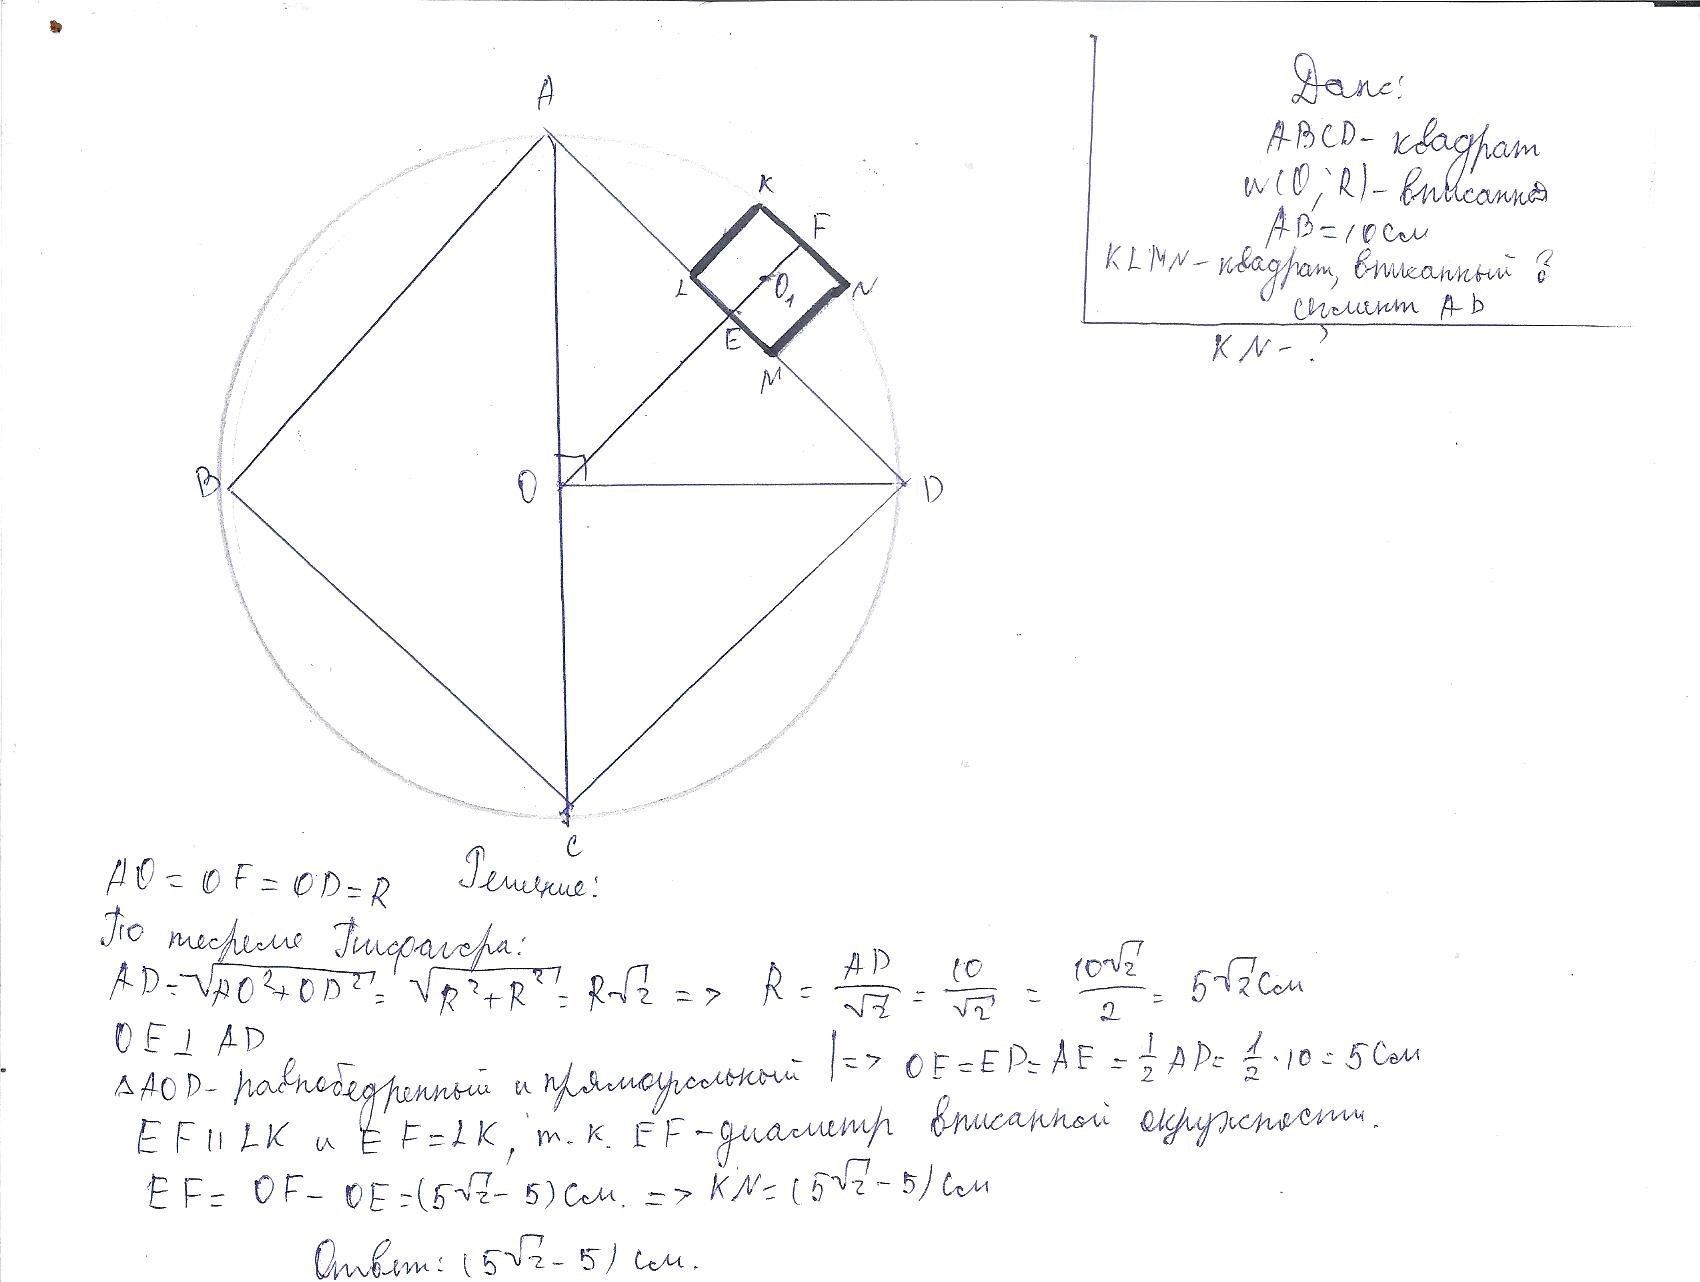 Дано:
ABCD - квадрат
w(O; R) - вписанная
AB = 10 см
KLMN - квадрат, вписанный в
сегмент AD
KN - ?
A
K
F
O₁
L
N
E
M
B
O
D
C
AO = OF = OD = R Решение:
По теореме Пифагора:
AD = √(AO² + OD²) = √(R² + R²) = R√2 => R = AD/√2 = 10/√2 = 10√2/2 = 5√2 см
OE ⊥ AD
△AOD - равнобедренный и прямоугольный | => OE = ED = AE = 1/2 AD = 1/2 · 10 = 5 см
EF || LK и EF = LK, т. к. EF - диаметр вписанной окружности.
EF = OF - OE = (5√2 - 5) см. => KN = (5√2 - 5) см
Ответ: (5√2 - 5) см.